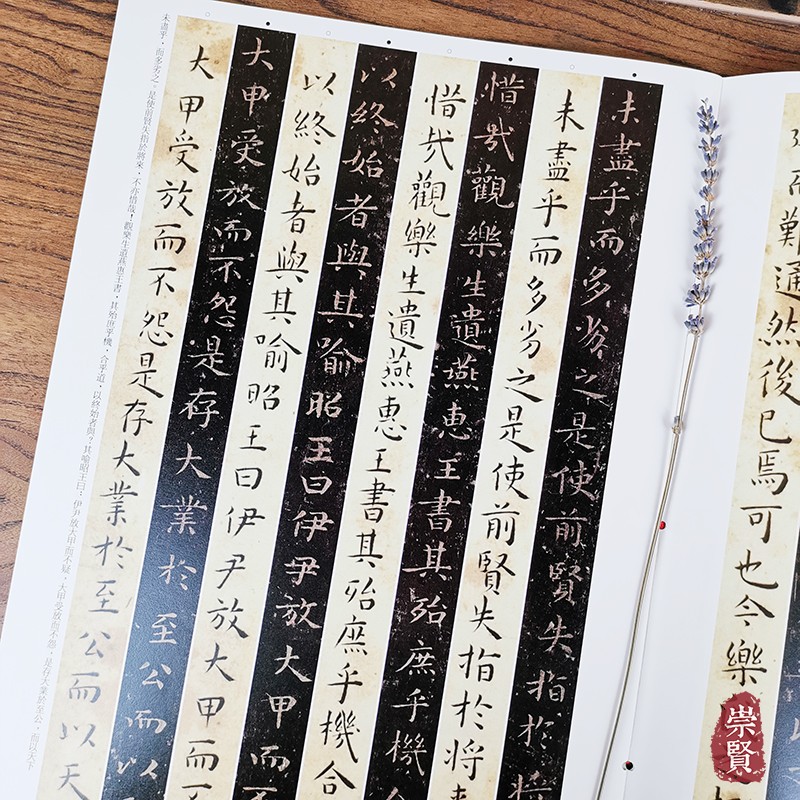 而難通然後已焉可也今樂
未盡乎而多劣之是使前賢失指於將
未盡乎而多劣之是使前賢失指於将
惜哉觀樂生遺燕惠王書其殆庶乎機
惜哉觀樂生遺燕惠王書其殆庶乎機合
以終始者與其喻昭王曰伊尹放大甲而
以終始者與其喻昭王曰伊尹放大甲而
大甲受放而不怨是存大業於至公而以
大甲受放而不怨是存大業於至公而以天
未盡乎,而多劣之。是使前賢失指於將來,不亦惜哉!觀樂生遺燕惠王書,其殆庶乎機,合乎道,以終始者與?其喻昭王曰:伊尹放大甲而不疑,大甲受放而不怨,是存大業於至公,而以天下
崇賢